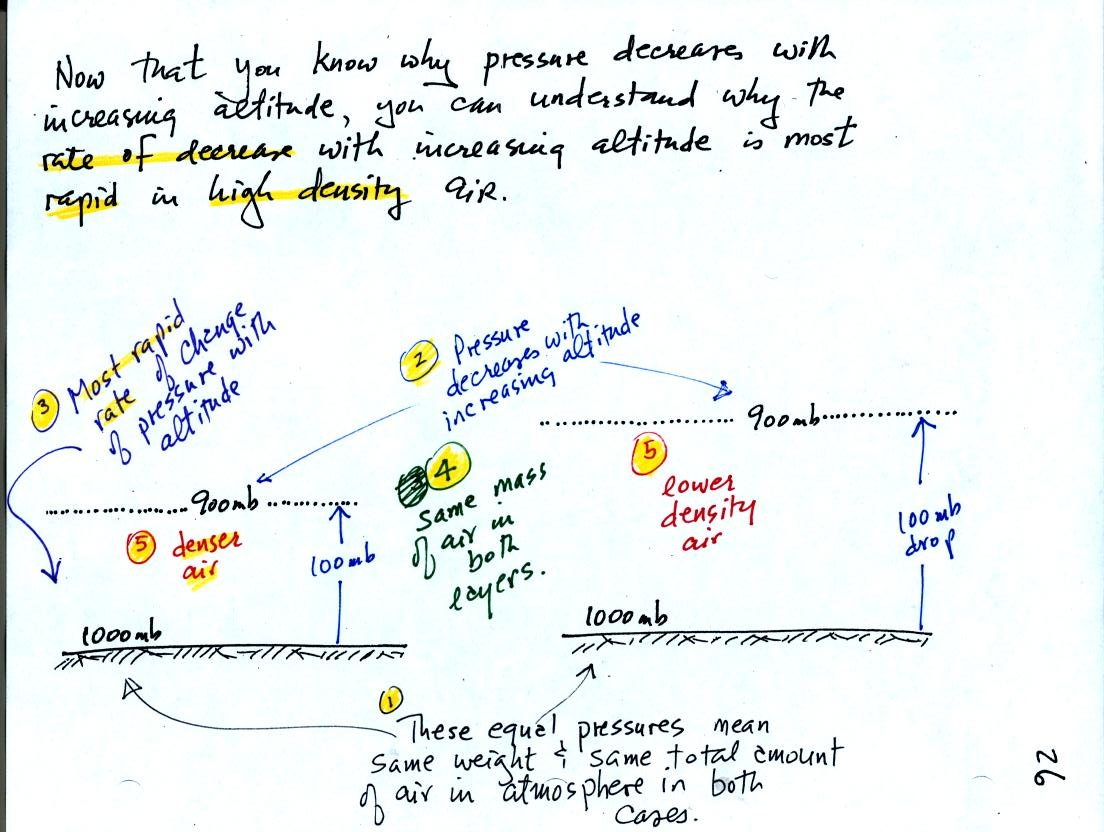 Now that you know why pressure decreases with
increasing altitude, you can understand why the
rate of decrease with increasing altitude is most
rapid in high density air.
③ Most rapid
rate of change
of pressure with
altitude
② Pressure
decreases with
increasing altitude
900mb
900mb
④
Same mass
of air in
both
layers.
⑤ denser
air
100mb
⑤
lower
density
air
100mb
drop
1000mb
1000mb
①
These equal pressures mean
same weight & same total amount
of air in atmosphere in both
cases.
92